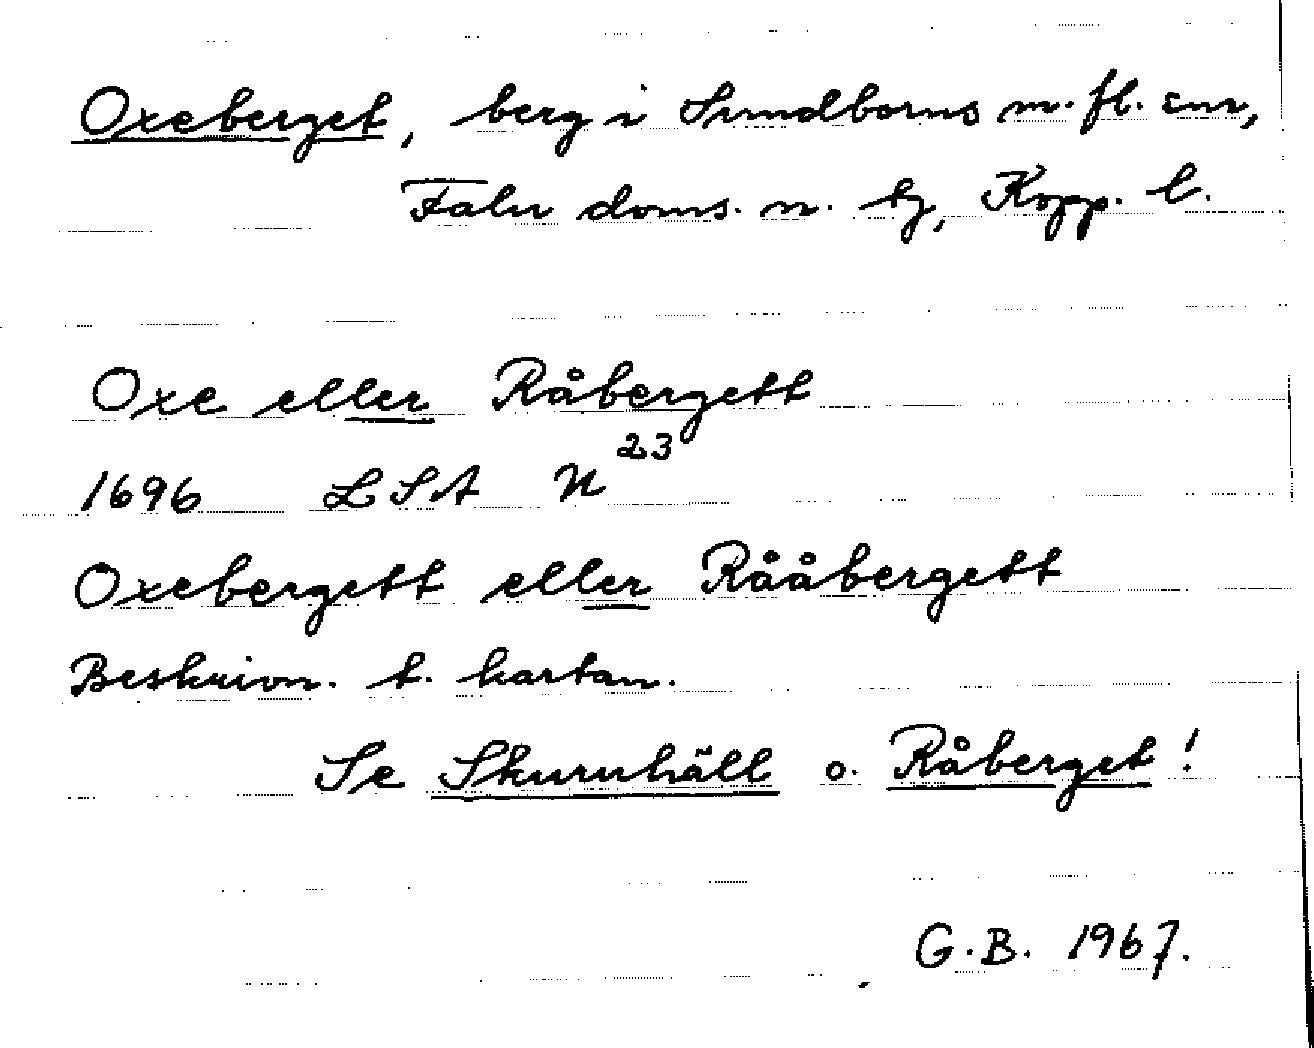 Oxeberget, berg i Sundborns m. fl. snr,
Falu doms. n. tg, Kopp. l.
Oxe eller Råbergett
1696 LSA N 23
Oxebergett eller Rååbergett
Beskrivn. t. kartan.
Se Skuruhäll o. Råberget!
G.B. 1967.